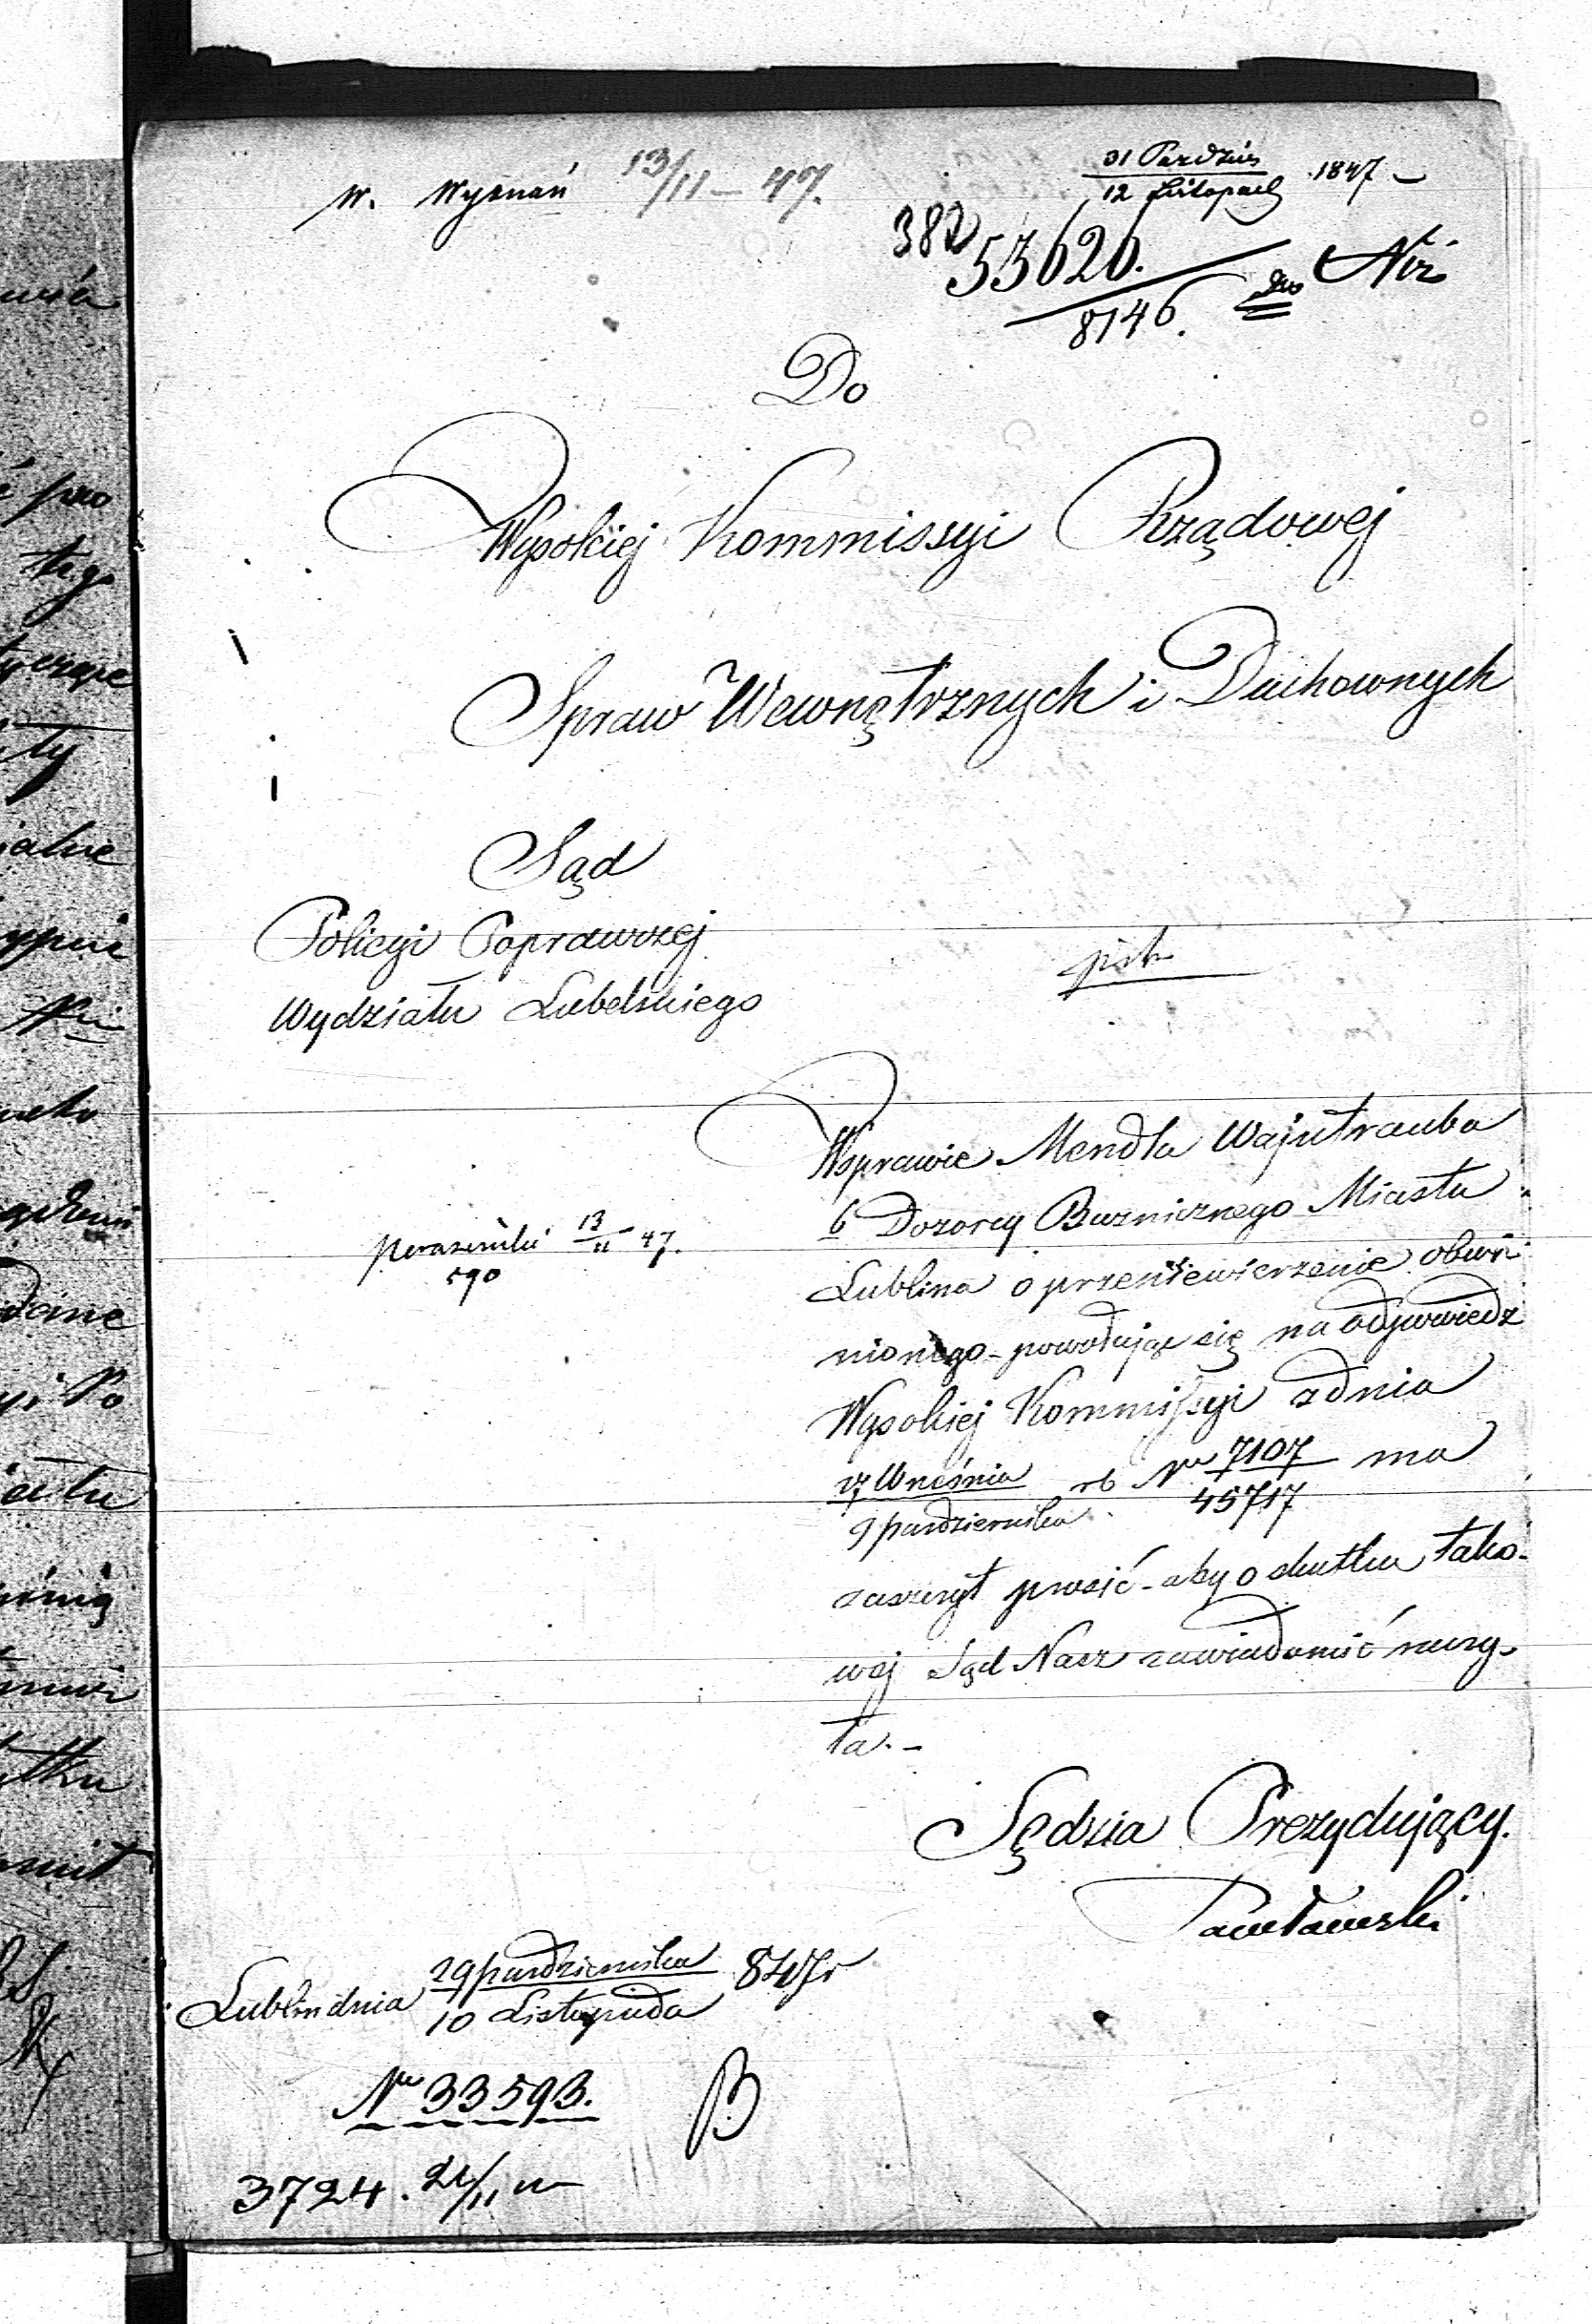 W. Wyznań 13/11 – 47.
31 Paździer
12 Listopad 1847 –
382
53626.
8146.
Do
Wysokiej Kommissyi Rządowej
Spraw Wewnętrznych i Duchownych
Sąd
Policyi Poprawczej
Wydziału Lubelskiego
W sprawie Mendla Wajntrauba
b Dozorcy Bużnicznego Miasta
Lublina o przeniewierzenie obwi-
nionego – powołując się na odpowiedz
Wysokiej Kommissyi z dnia
27 Września
9 pazdziernika rb Nr 7107
45717 ma
zaszczyt prosić – aby o skutku tako-
wej Sąd Nasz zawiadomić raczy-
ła. –
13
11 47.
590
Sędzia Prezydujący.
Lublin dnia 29 pazdziernika
10 Listopada 847 r
Nr 33593.
B
3724.